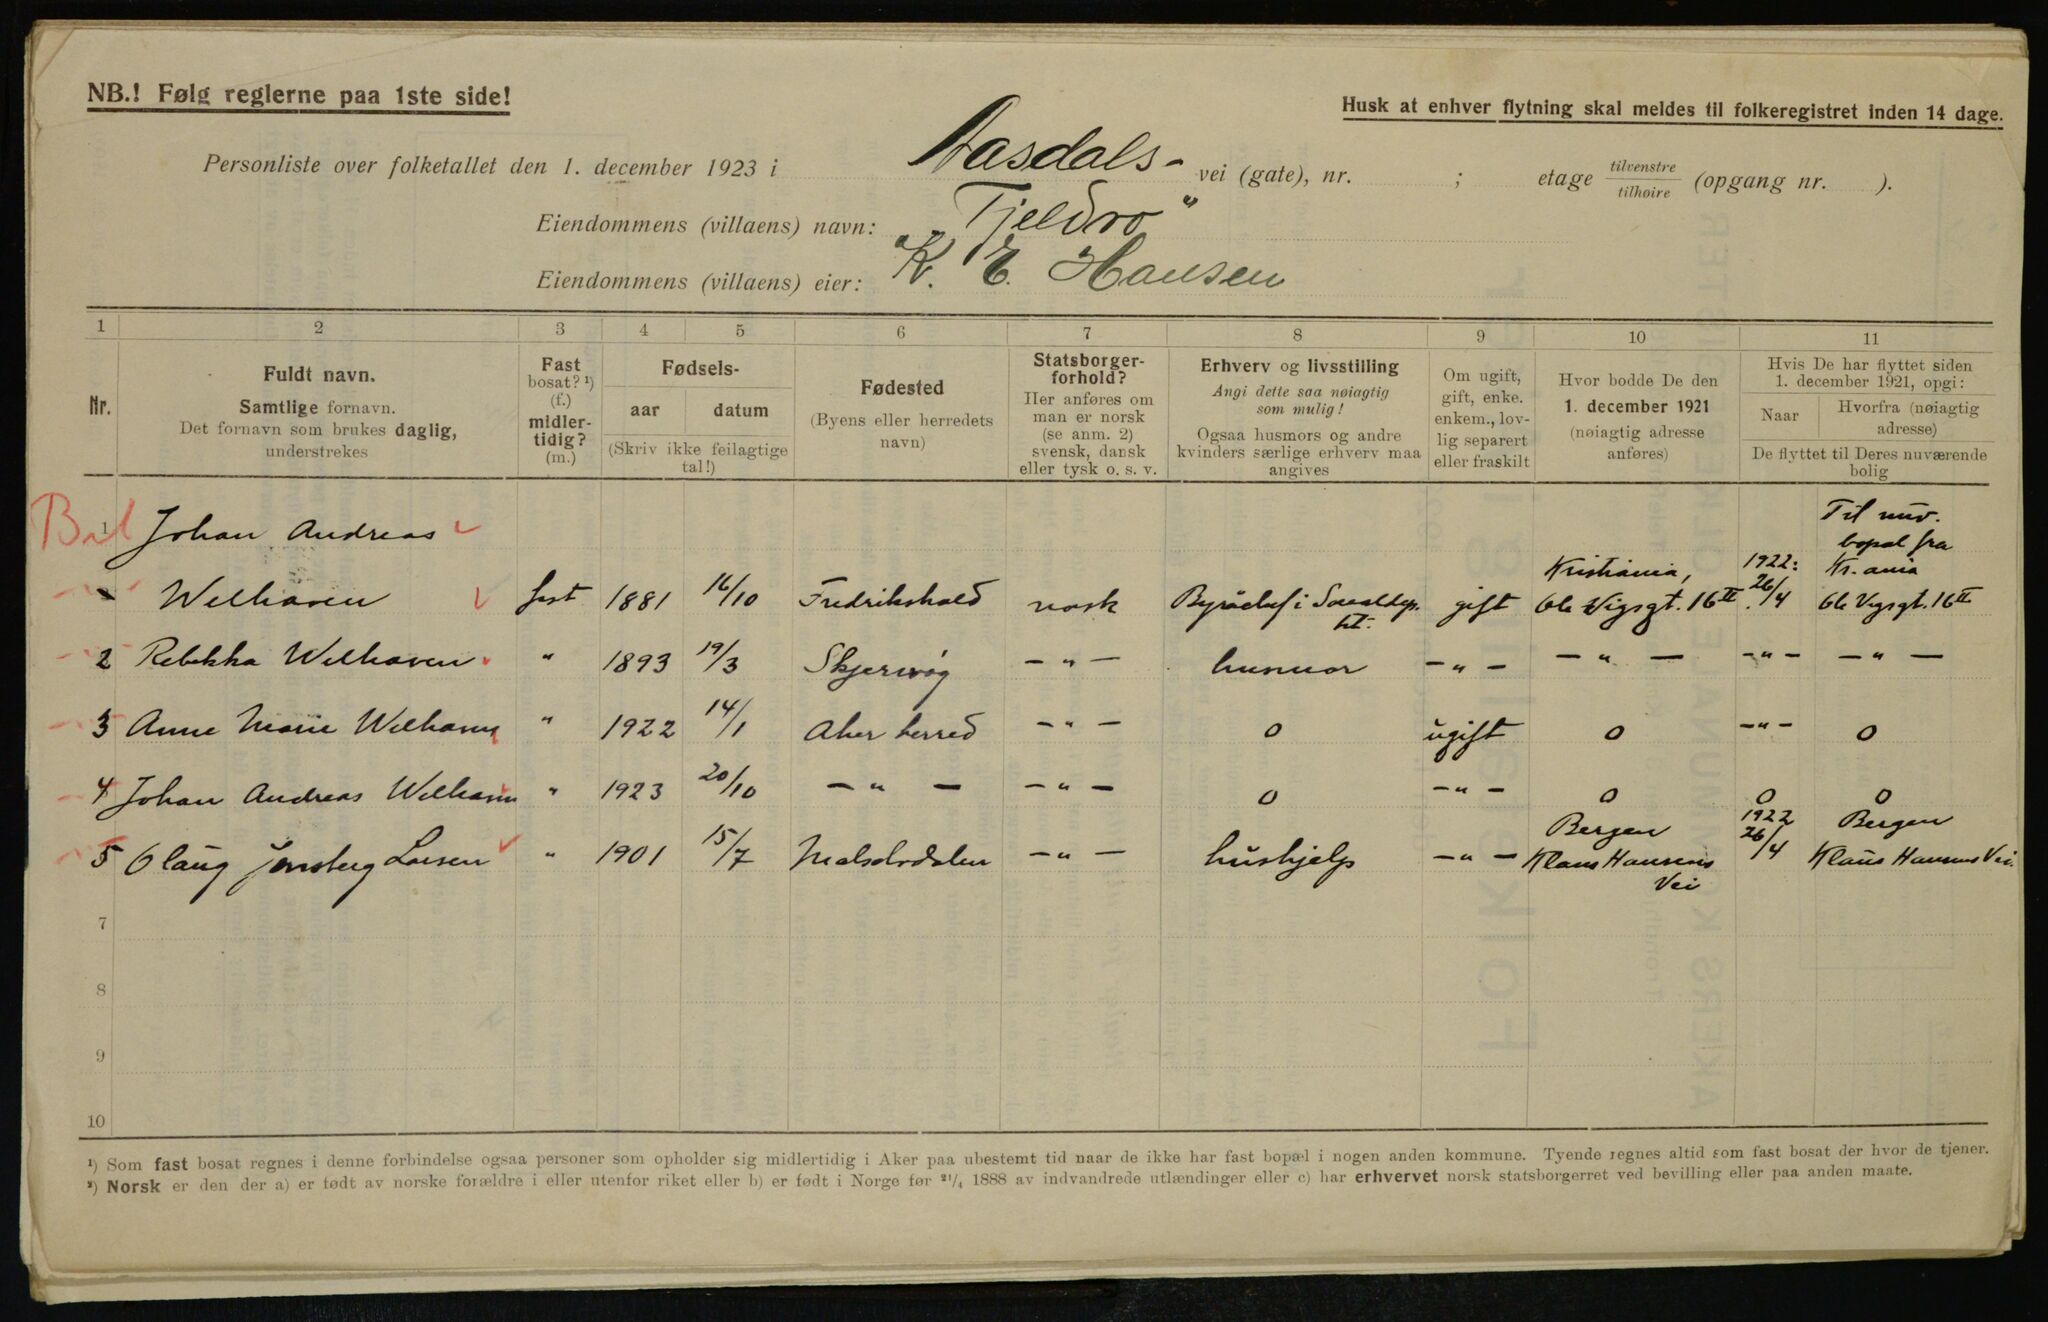 NB.! Følg reglerne paa 1ste side!
Husk at enhver flytning skal meldes til folkeregistret inden 14 dage.
Personliste over folketallet den 1. december 1923 i Aasdals- vei (gate), nr. ; etage tilvenstre/tilhøire (opgang nr. ).
Eiendommens (villaens) navn: "Fjeldro"
Eiendommens (villaens) eier: K. E. Hansen
1 2 3 4 5 6 7 8 9 10 11
Nr.
Fuldt navn.
Samtlige fornavn.
Det fornavn som brukes daglig,
understrekes
Fast
bosat? ¹)
(f.)
midler-
tidig?
(m.)
Fødsels-
aar datum
(Skriv ikke feilagtige
tal!)
Fødested
(Byens eller herredets
navn)
Statsborger-
forhold?
Her anføres om
man er norsk
(se anm. 2)
svensk, dansk
eller tysk o. s. v.
Erhverv og livsstilling
Angi dette saa nøiagtig
som mulig!
Ogsaa husmors og andre
kvinders særlige erhverv maa
angives
Om ugift,
gift, enke.
enkem., lov-
lig separert
eller fraskilt
Hvor bodde De den
1. december 1921
(nøiagtig adresse
anføres)
Hvis De har flyttet siden
1. december 1921, opgi:
Naar Hvorfra (nøiagtig
adresse)
De flyttet til Deres nuværende
bolig
1 Johan Andreas Til nuv.
bopæl fra
Kristiania, 1922: Kr.ania
Welhaven fast 1881 16/10 Fredrikshald norsk gift Ole Vigsgt. 16 II 26/4 Ole Vigsgt. 16 II
2 Rebekka Welhaven " 1893 19/3 Skjervøg — " — husmor — " — — " — — " — — " —
3 Anne Marie Welhaven " 1922 14/1 Aker herred — " — 0 ugift 0 — " — 0
4 Johan Andreas Welhaven " 1923 20/10 — " — — " — 0 — " — 0 0 0
Bergen 1922 Bergen
5 Olaug Larsen " 1901 15/7 — " — hushjelp — " — Klaus Hansens 26/4 Klaus Hansens Vei.
Vei
7
8
9
10
¹) Som fast bosat regnes i denne forbindelse ogsaa personer som opholder sig midlertidig i Aker paa ubestemt tid naar de ikke har fast bopæl i nogen anden kommune. Tyende regnes altid som fast bosat der hvor de tjener.
²) Norsk er den der a) er født av norske forældre i eller utenfor riket eller b) er født i Norge før ²¹/₄ 1888 av indvandrede utlændinger eller c) har erhvervet norsk statsborgerret ved bevilling eller paa anden maate.